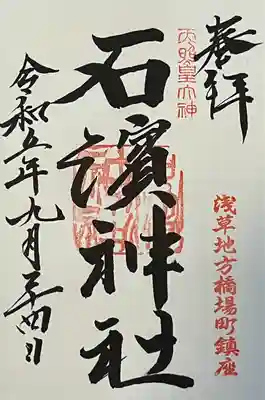 奉拝
浅草地方橋場町鎮座
天照皇大神
石濱神社
令和五年九月二十四日